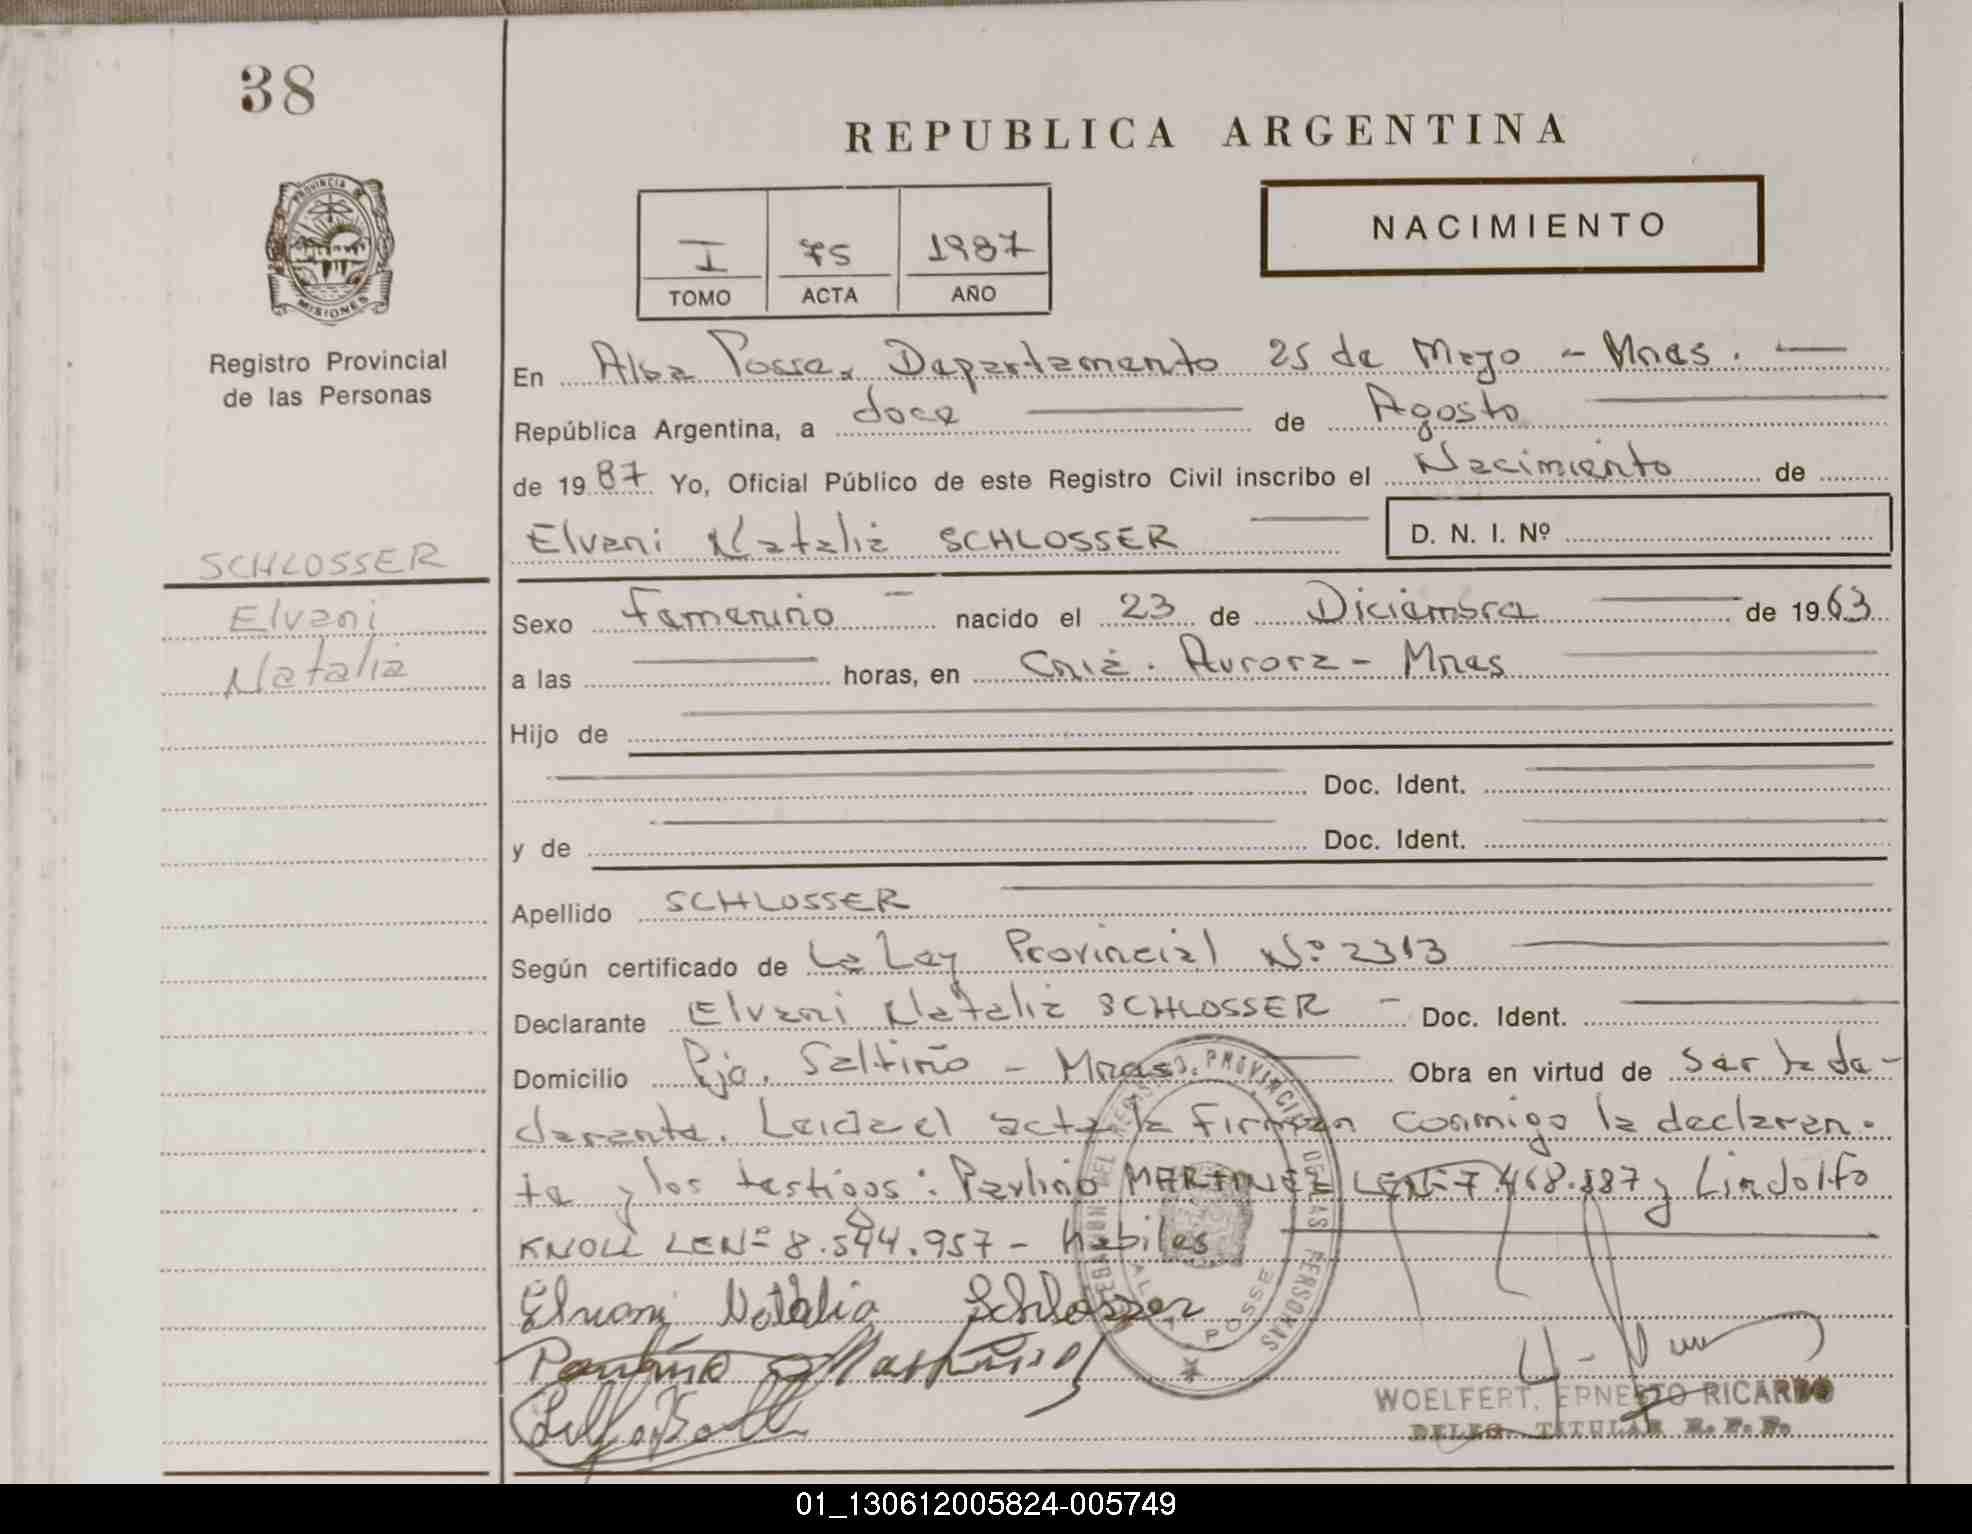 38
REPUBLICA ARGENTINA
PROVINCIA DE
MISIONES
I 75 1987
TOMO ACTA AÑO
NACIMIENTO
Registro Provincial
de las Personas
En Alba Posse, Departamento 25 de Mayo - Mnes.
República Argentina, a doce de Agosto
de 1987 Yo, Oficial Público de este Registro Civil inscribo el Nacimiento de
Elvani Natalia SCHLOSSER D. N. I. Nº
SCHLOSSER
Elvani
Natalia
Sexo Femenino nacido el 23 de Diciembre de 1963
a las horas, en Cnia. Aurora - Mnes
Hijo de
Doc. Ident.
y de Doc. Ident.
Apellido SCHLOSSER
Según certificado de La Ley Provincial Nº 2313
Declarante Elvani Natalia SCHLOSSER - Doc. Ident.
Domicilio Pje. Saltiño - Mnes. Obra en virtud de ser la de-
clarante. Leida el acta la firman conmigo la declaran-
te y los testigos: Paulino MARTINEZ LENº 7.468.887 y Lindolfo
KNOLL LENº 8.544.957 - habiles
Elvani Natalia Schlosser
Paulino Martinez
REGISTRO PROVINCIAL DE LAS PERSONAS
ALBA POSSE
WOELFERT, ERNESTO RICARDO
DELEG. TITULAR R. P. P.
01_130612005824-005749